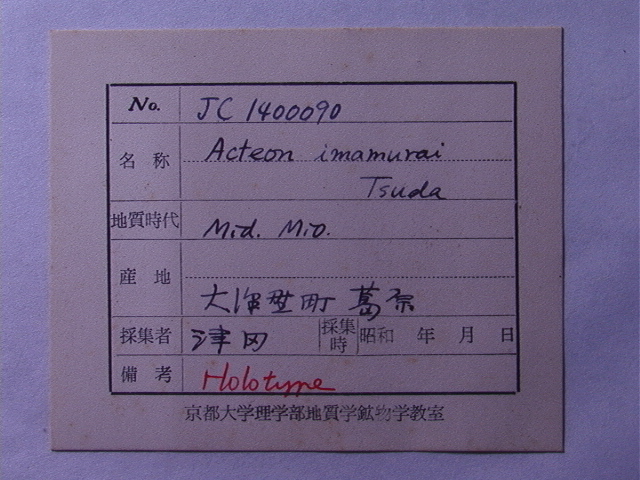 No. JC 1400090
名称 Acteon imamurai
Tsuda
地質時代 Mid. Mio.
産地
大沢野町 葛原
採集者 津田 採集時 昭和 年 月 日
備考 Holotype
京都大学理学部地質学鉱物学教室